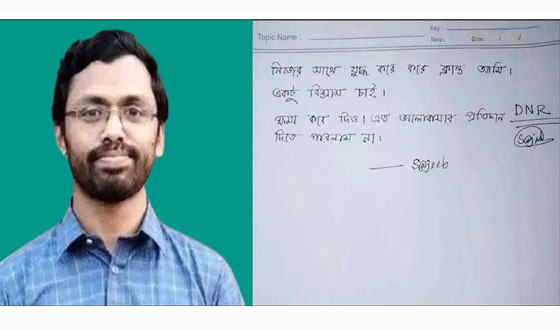 Day :
Topic Name :
Time :
Date : / /
নিজের সাথে যুদ্ধ করে করে ক্লান্ত আমি।
একটু বিশ্রাম চাই।
ক্ষমা করে দিও। এত ভালোবাসার প্রতিদান
দিতে পারলাম না।
DNR
Sajeeb
Sajeeb